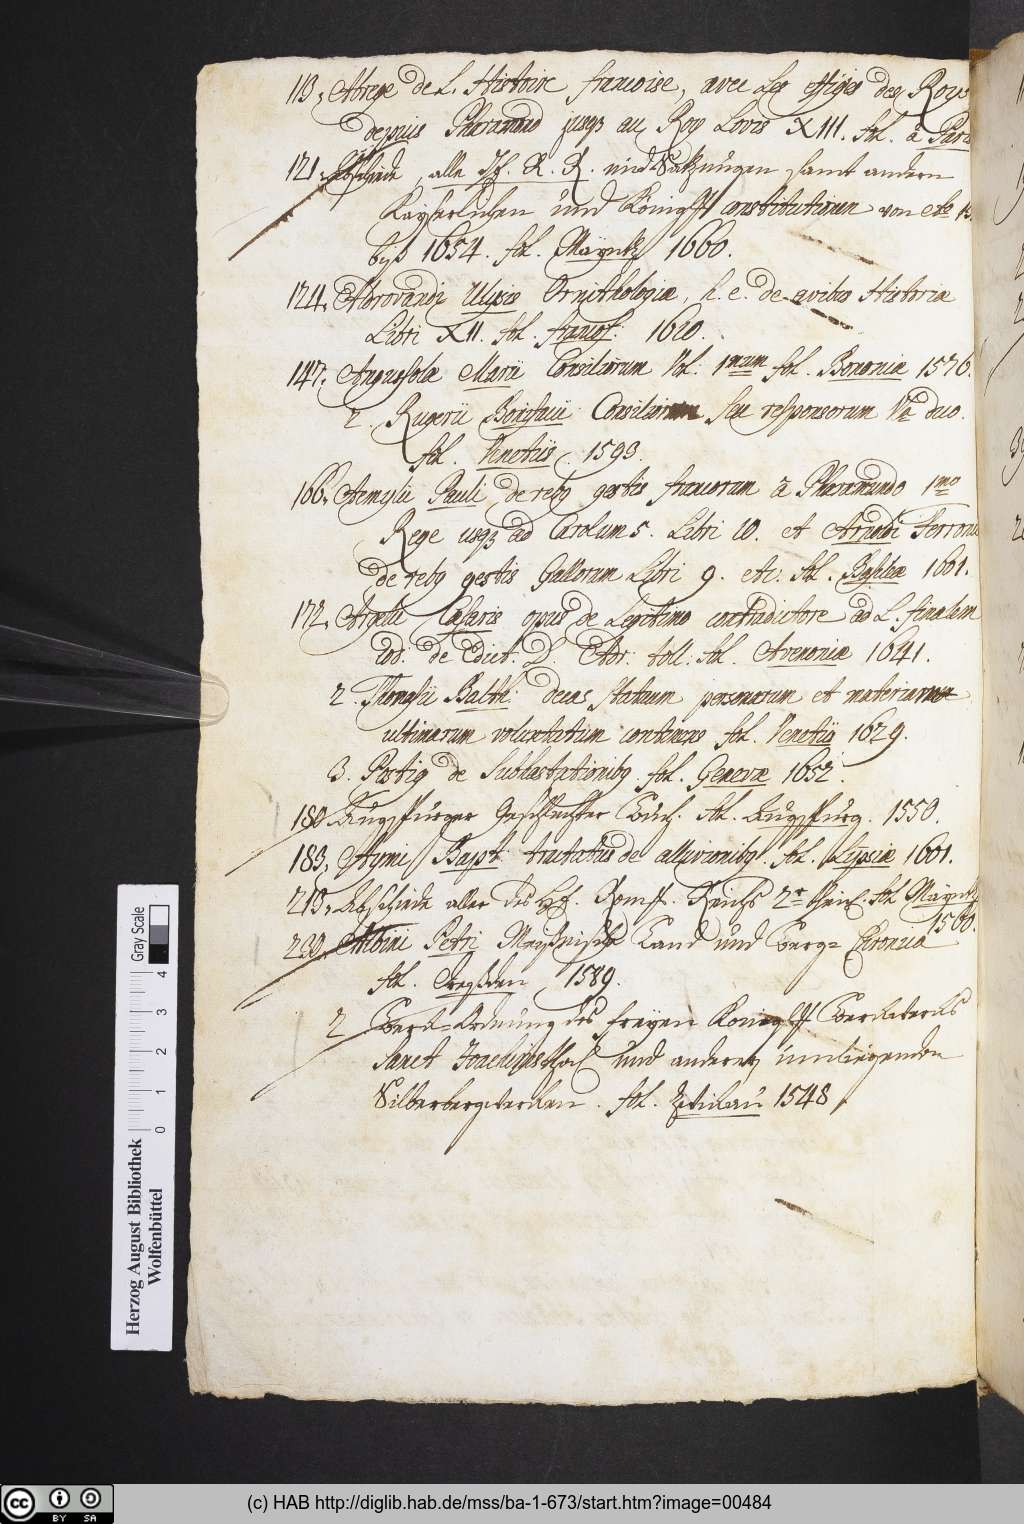 113. Abrege de L. Histoire francoise, avec Les effigies des Roys
depuis Pharamond jusqz au Roy Lovis XIII. fol. à Paris
121. Abschiede, alle Jh. R. R. und Satzungen samt andern
Kayserlichen und Königl constitutionen von Ao 15
biß 1654. fol. Mayntz 1660.
124. Aldrovandi Ulyssis Ornithologiæ, h. e. de avibus Historiæ
Libri XII. fol. francof: 1610.
147. Anguissolæ Marii Consiliorum Vol: 1mum fol. Bononiæ 1576.
2. Rugerii Bonifacii Consiliorum seu responsorum Va duo.
fol. Venetiis. 1593.
166. Aemylii Pauli de rebq gestis francorum à Pharamundo 1mo
Rege usqz ad Carolum 5. Libri 10. et Arnoldi Ferroni
de rebq gestis Gallorum Libri 9. etc: fol. Basileæ 1601.
172. Argelii Cæsaris opus de Legitimo contradictore ad L. finalem
Cod: de Edict: D. Adr: toll: fol. Avenoniæ 1641.
2. Thomasii Balth: decas statuum personarum et materiarum
ultimarum voluntatum continens fol. Venetiis 1629.
3. Postiq de Subhastationibq. fol. Genevæ 1652.
180. Augsspurger Geschlechter Buch. fol. Augsspurg. 1550.
183. Aymi Bapt: tractatus de alluvionibq. fol. Lipsiæ 1601.
213. Abschiede aller des H. Rom. Reichs 2r theil. fol Mayntz
1560.
230. Albini Petri Meyßnische Land und Berg= Chronica
fol. Dreßden 1589.
2. Berck=Ordnung des freyen Königl Berckwercks
Sanct Joachimsthal und anderen umliegenden
Silberbergwercken. fol. Zwickau 1548.
Herzog August Bibliothek
Wolfenbüttel
0 1 2 3 4
Gray Scale
cc BY SA
(c) HAB http://diglib.hab.de/mss/ba-1-673/start.htm?image=00484